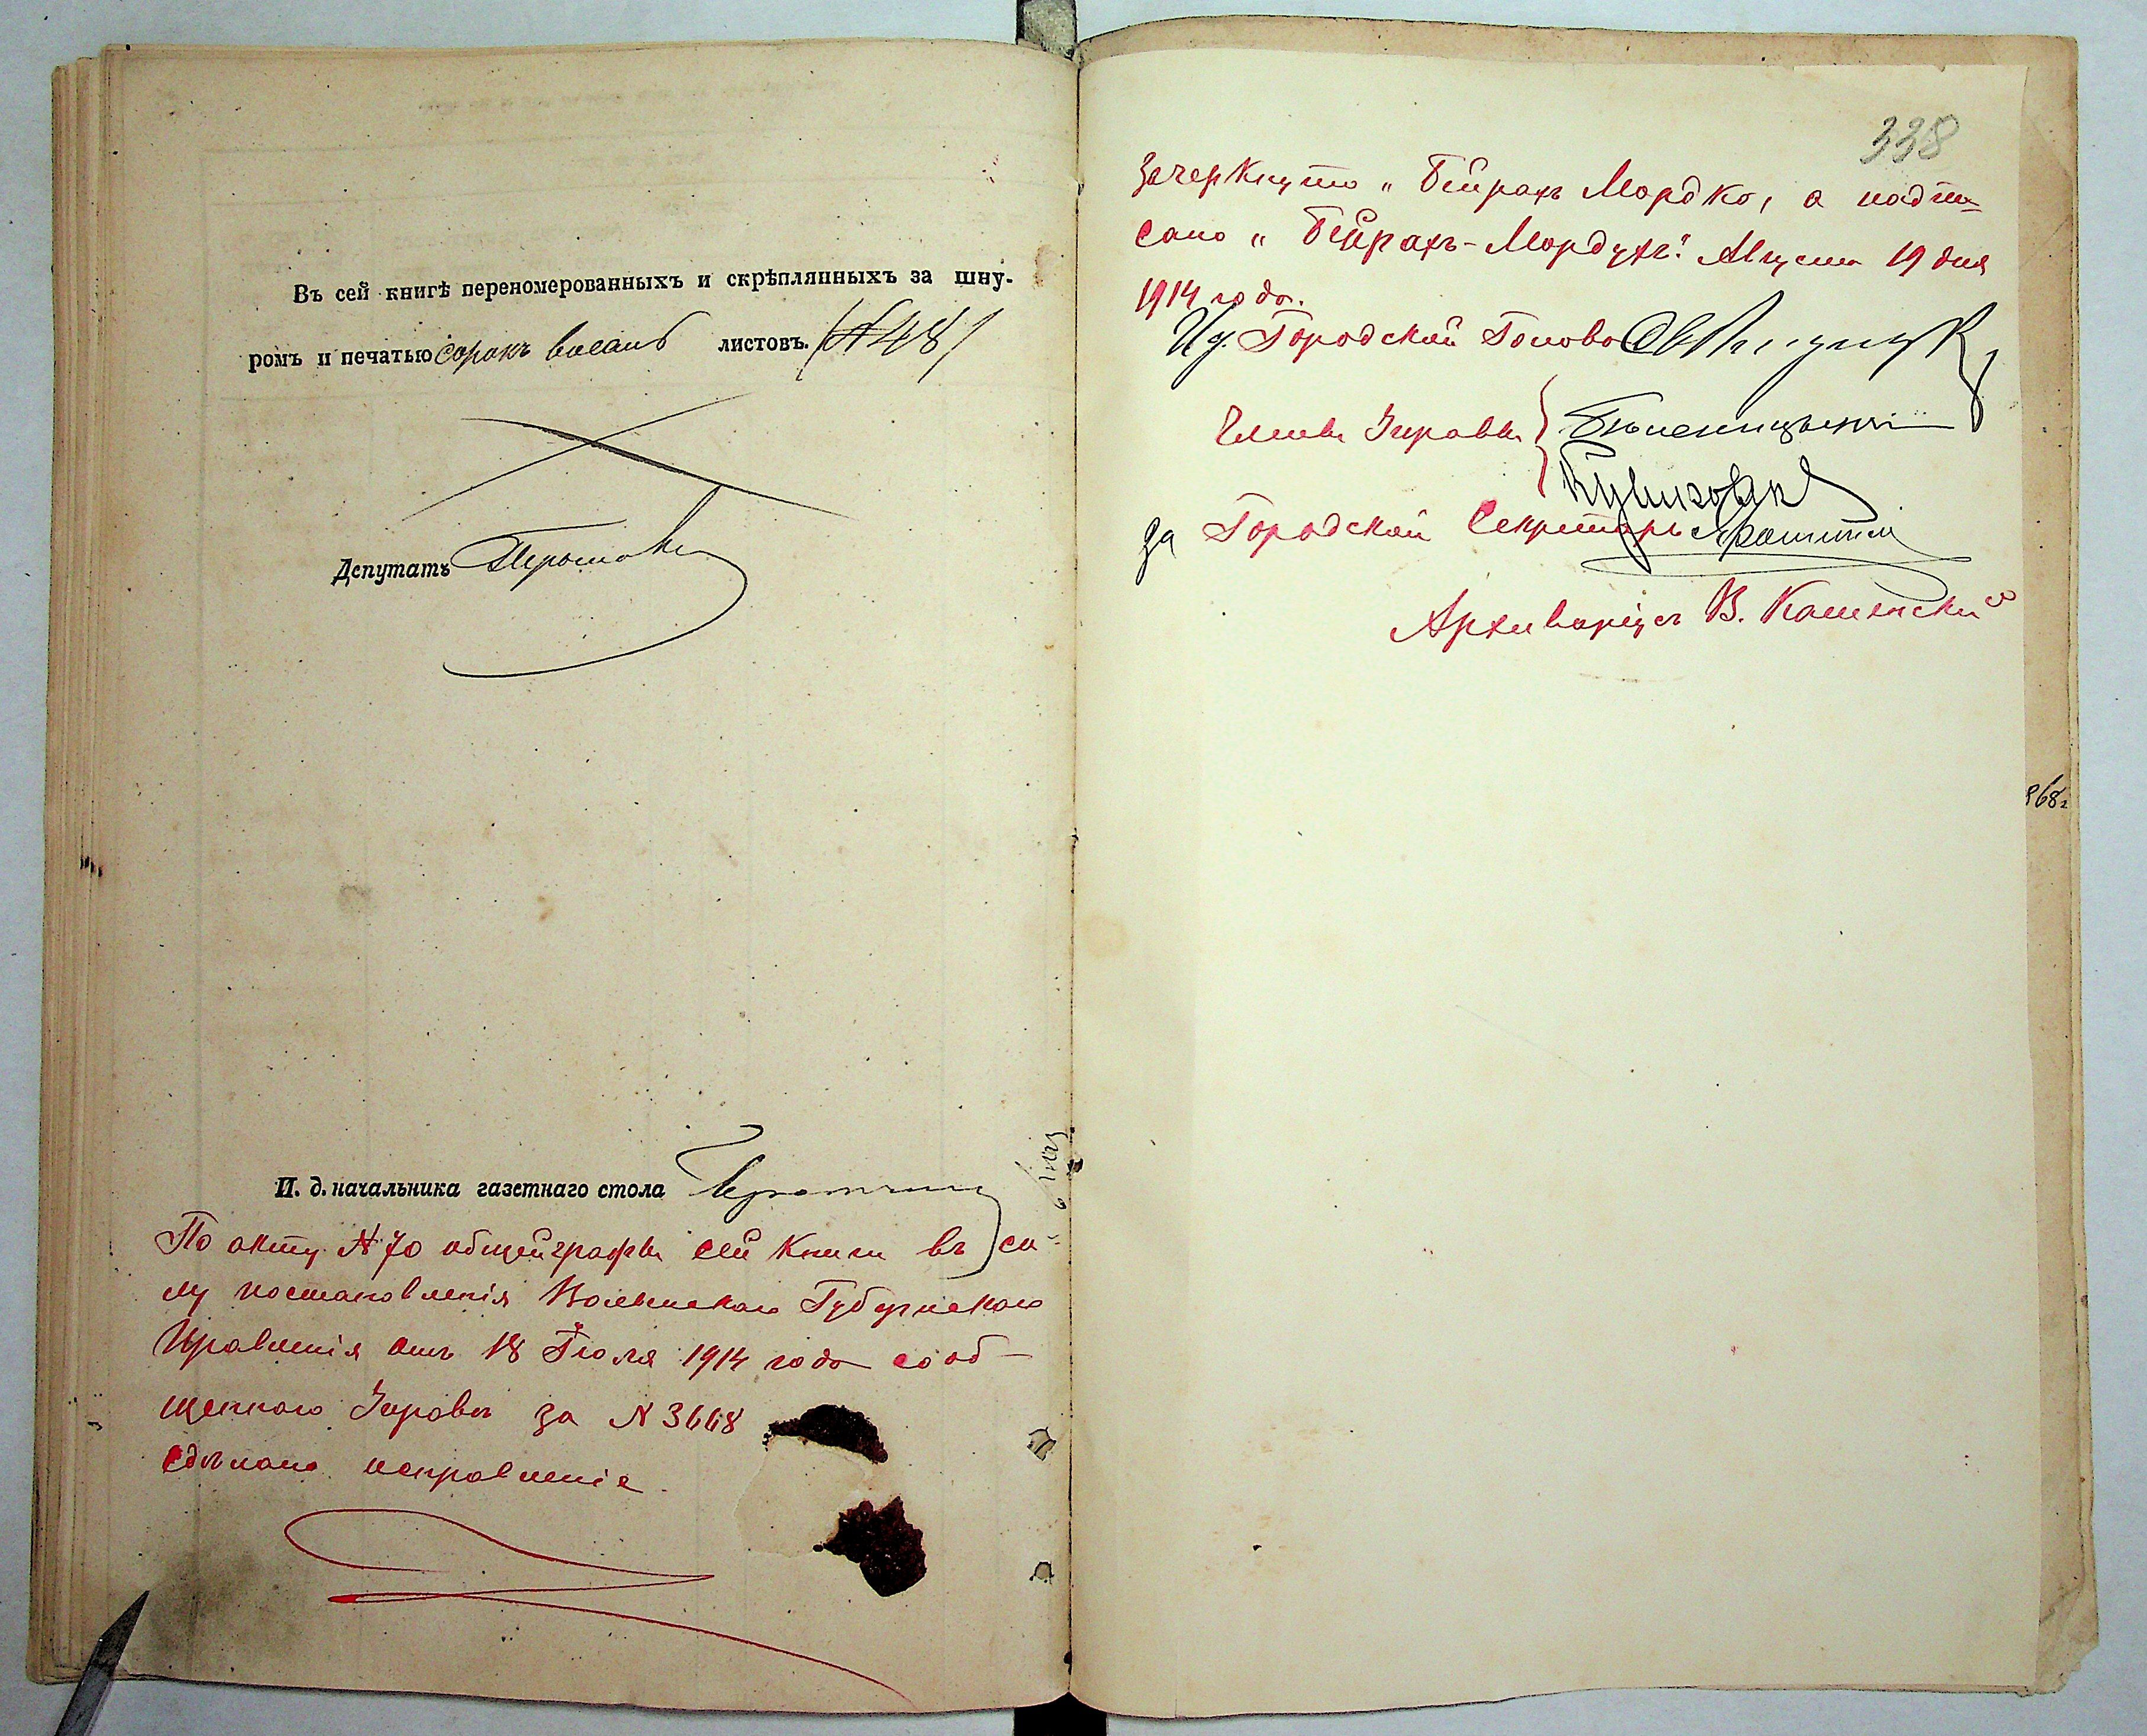 Въ сей книгѣ переномерованныхъ и скрѣплянныхъ за шну-
ромъ и печатью сорокъ восемь листовъ. (№48)
Депутатъ
И. д. начальника газетнаго стола
По акту №70 общей графы сей книги въ си-
лу постановленія Волынскаго Губернскаго
Правленія отъ 18 Іюля 1914 года сооб-
щеннаго Управѣ за №3668
сдѣлано исправленіе.
338
Зачеркнуто „Бейрахъ Мордко, а надпи-
сано „Бейрахъ-Мордухъ“. Августа 19 дня
1914 года.
И д. Городской Голова
Члены Управы
За Городской Секретарь
Архиваріусъ В. Каменскій
868г